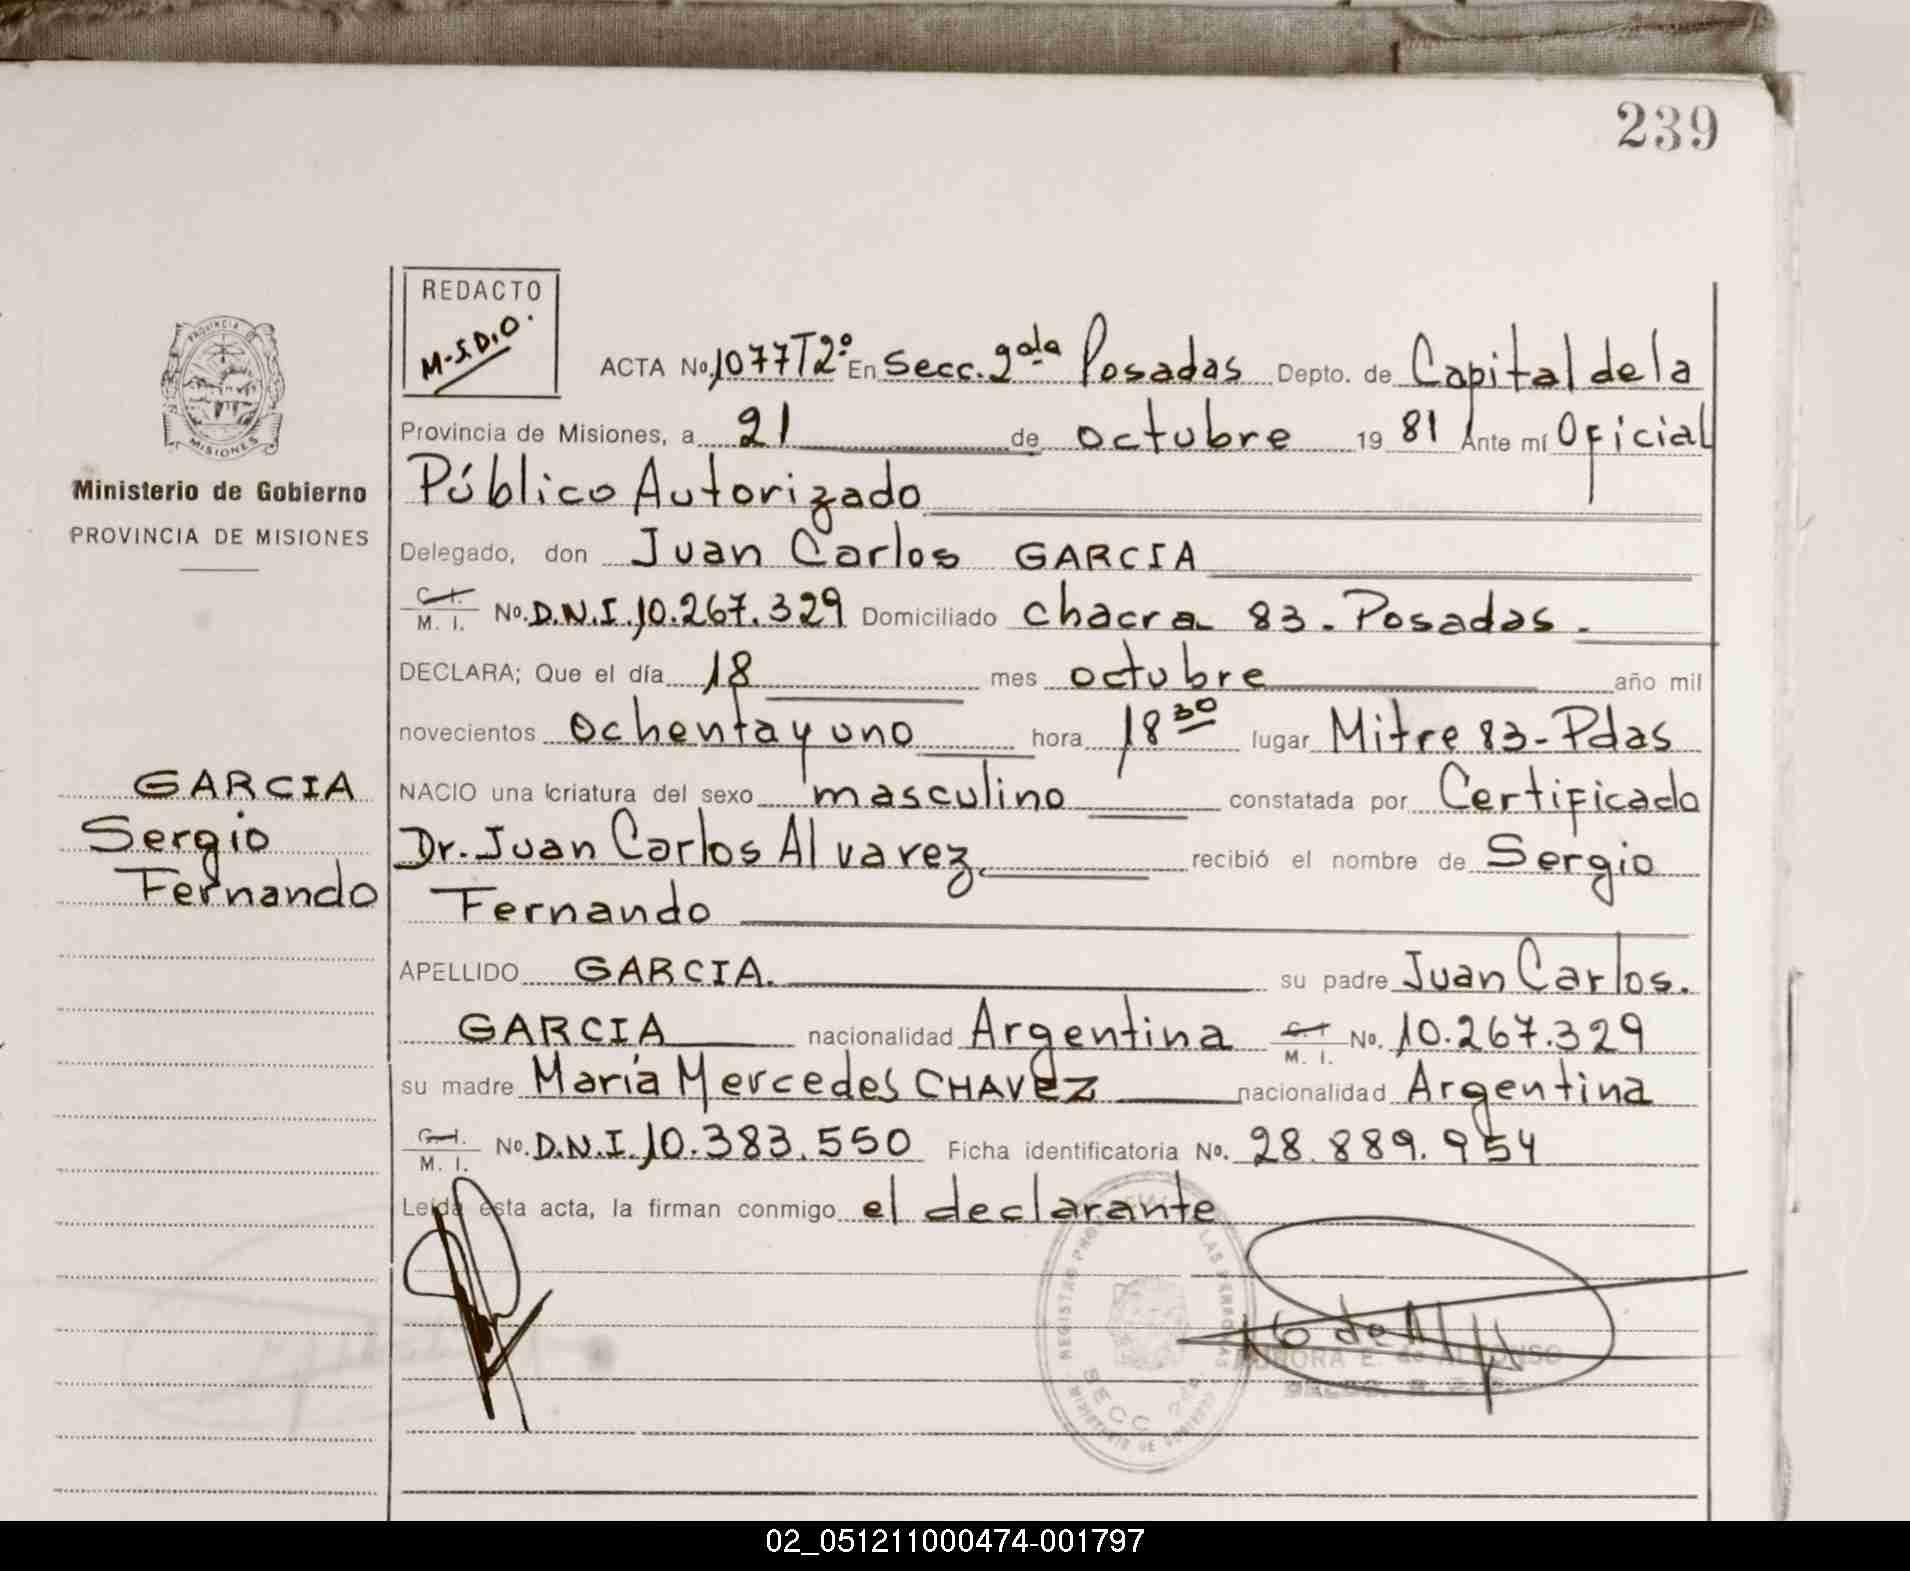 239
REDACTO
M-S.D.O.
ACTA No. 1077T2º En Secc. 2da Posadas Depto. de Capital de la
Provincia de Misiones, a 21 de octubre 19 81 Ante mí Oficial
Público Autorizado
Delegado, don Juan Carlos GARCIA
C. I. M. I. No. D.N.I. 10.267.329 Domiciliado chacra 83 - Posadas -
DECLARA; Que el día 18 mes octubre año mil
novecientos ochenta y uno hora 18 30 lugar Mitre 83 - Pdas
NACIO una criatura del sexo masculino constatada por Certificado
Dr. Juan Carlos Alvarez recibió el nombre de Sergio
Fernando
APELLIDO GARCIA. su padre Juan Carlos.
GARCIA nacionalidad Argentina C. I. M. I. No. 10.267.329
su madre María Mercedes CHAVEZ nacionalidad Argentina
C. I. M. I. No. D.N.I. 10.383.550 Ficha identificatoria No. 28.889.954
Leída esta acta, la firman conmigo el declarante
PROVINCIA DE
MISIONES
Ministerio de Gobierno
PROVINCIA DE MISIONES
GARCIA
Sergio
Fernando
REGISTRO
LAS PERSONAS
SECC 2da
MINISTERIO DE GOBIERNO
AURORA E. de ALFONSO
02_051211000474-001797